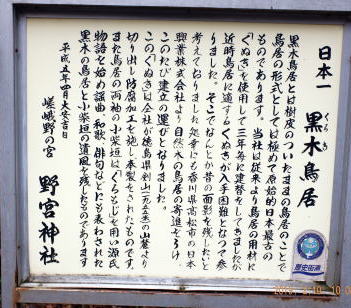 日本一 黒木鳥居
くろき
黒木鳥居とは樹皮のついたままの鳥居のことで
鳥居の形式としては極めて原始的日本最古の
ものであります。当社は従来より鳥居の用材に
くぬぎを使用して三年毎に建替をしてきましたが
近時鳥居に適するくぬぎが入手困難となって参
りました。そこでなんとか昔の面影を残したいと
考えておりました処幸にも香川県高松市の日本
興業株式会社より自然木の鳥居の寄進をうけ、
このたび建立の運びとなりました。
このくぬぎは仝社が徳島県剣山(一九五五米)の山麓より
切り出し防腐加工を施し奉製をされたものです。
また鳥居の両袖の小柴垣はくろもじを用い源氏
物語を始め謡曲、和歌、俳句などにも表わされた
黒木の鳥居と小柴垣の遺風を残したものであります
平成五年四月大安吉日
嵯峨野の宮 野宮神社
歴史街道